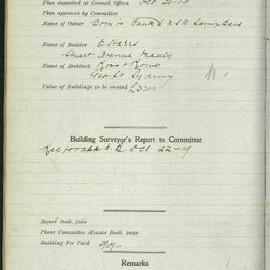 Plan deposited at Council Office Oct 21-19
Plan approved by Committee
Name of Owner Com's Bank & S. Savings Bank
Name of Builder E Harris
Street Avenue Manly
Name of Architect Ross & Rowe
Geo St Sydney
Value of Buildings to be erected £3
Building Surveyor's Report to Committee
Oct 22-19
Report Book, folio
Plans Committee Minute Book, page
Building Fee Paid
Remarks